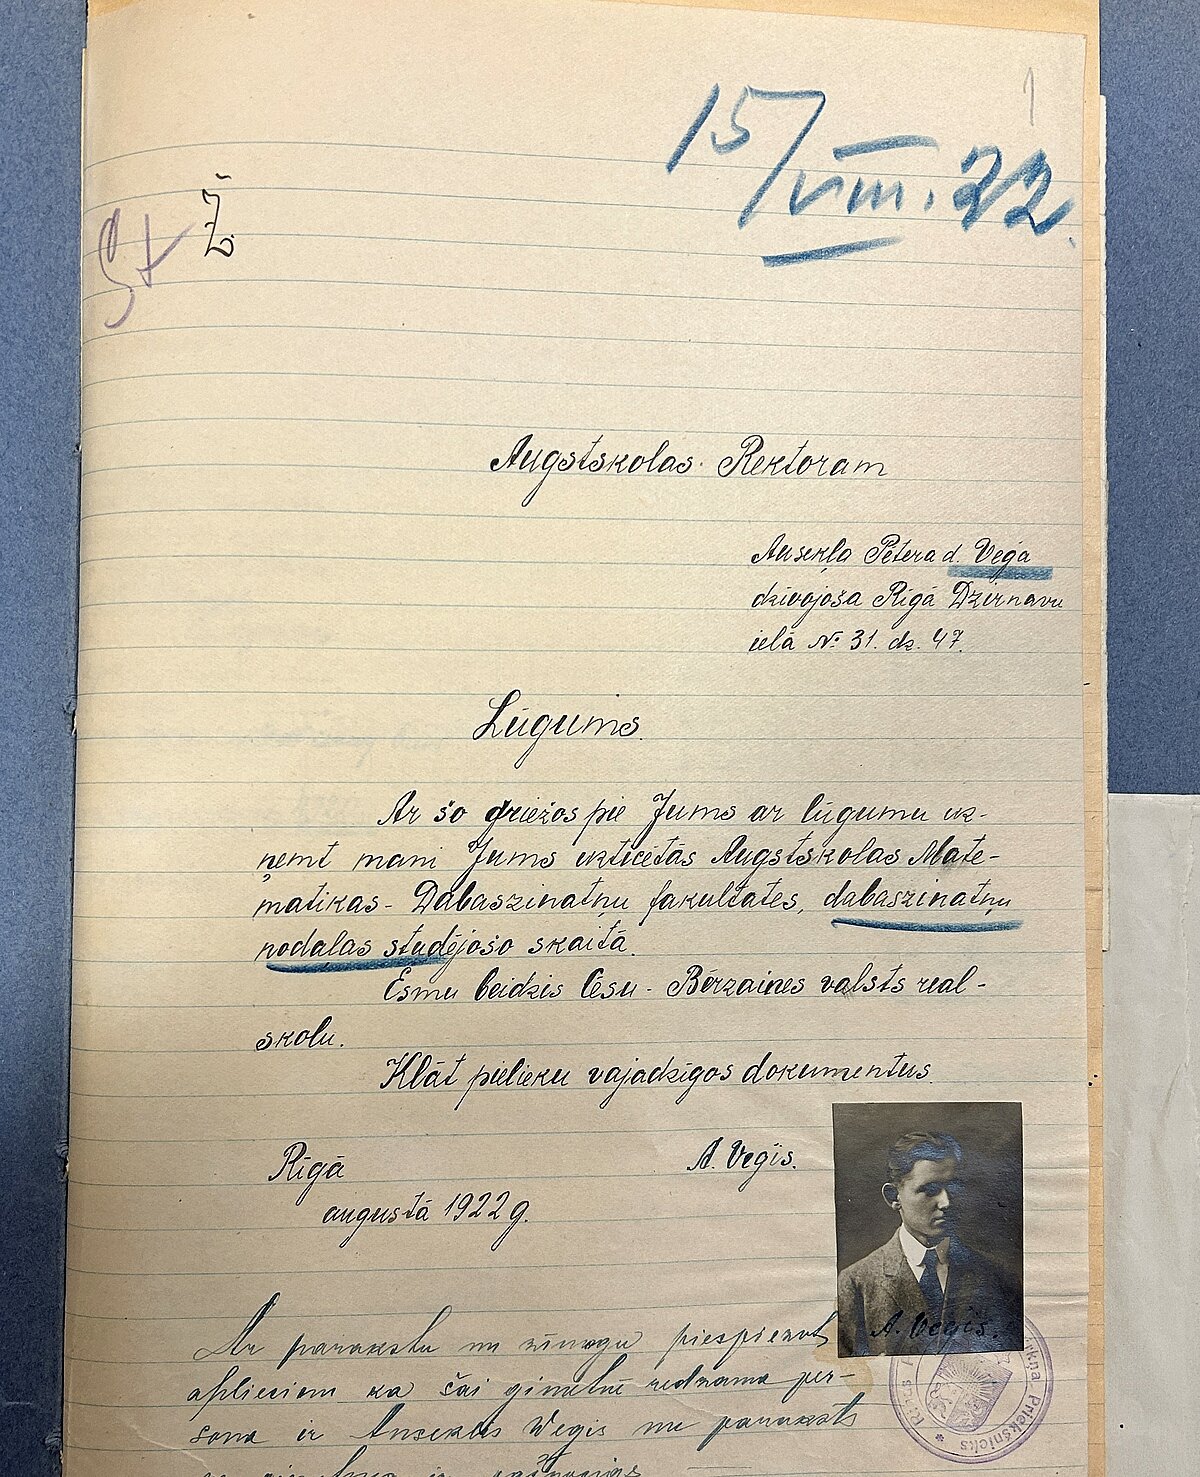 1
15/VIII.22.
Ž
Augstskolas Rektoram
Ausekļa Pētera d. Veģa
dzīvojoša Rīgā Dzirnavu
ielā № 31. dz. 47.
Lūgums.
Ar šo griežos pie Jums ar lūgumu uz-
ņemt mani Jums uzticētās Augstskolas Mate-
matikas- Dabaszinatņu fakultates, dabaszinatņu
nodaļas studējošo skaitā.
Esmu beidzis Cēsu- Bērzaines valsts real-
skolu.
Klāt pielieku vajadzīgos dokumentus.
Rīgā
A. Veģis.
augustā 1922 g.
A. Veģis.
Ar parakstu un zīmogu piespiezot
apliecinu ka šai ģimetnē redzama per-
sona ir Anseklis Wegis un paraksts
ir
Priekšnieks